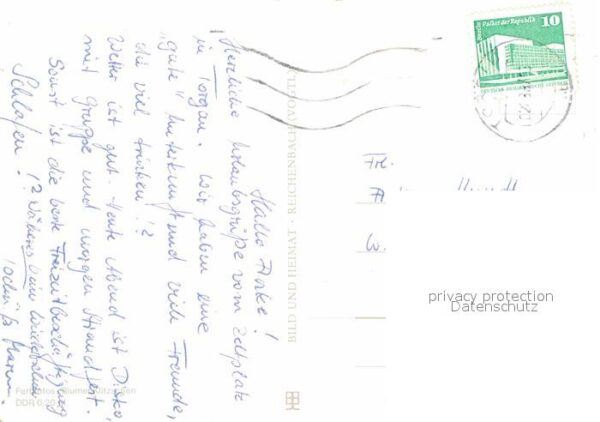 Hallo Anke!
Herzliche Urlaubsgrüße vom Zeltplatz
in Torgau. Wir haben eine
"gute" Unterkunft und viele Freunde,
die viel trinken!?
Wetter ist gut. Heute Abend ist Disko
mit Gruppe und morgen Strandfest.
Sonst ist die beste Freizeitbeschäftigung
Schlafen!? Näheres beim Wiedersehen
Tschüß
BILD UND HEIMAT · REICHENBACH (VOGTL)
DDR
Berlin Palast der Republik
10
DEUTSCHE DEMOKRATISCHE REPUBLIK
Frl.
A
W.
privacy protection
Datenschutz